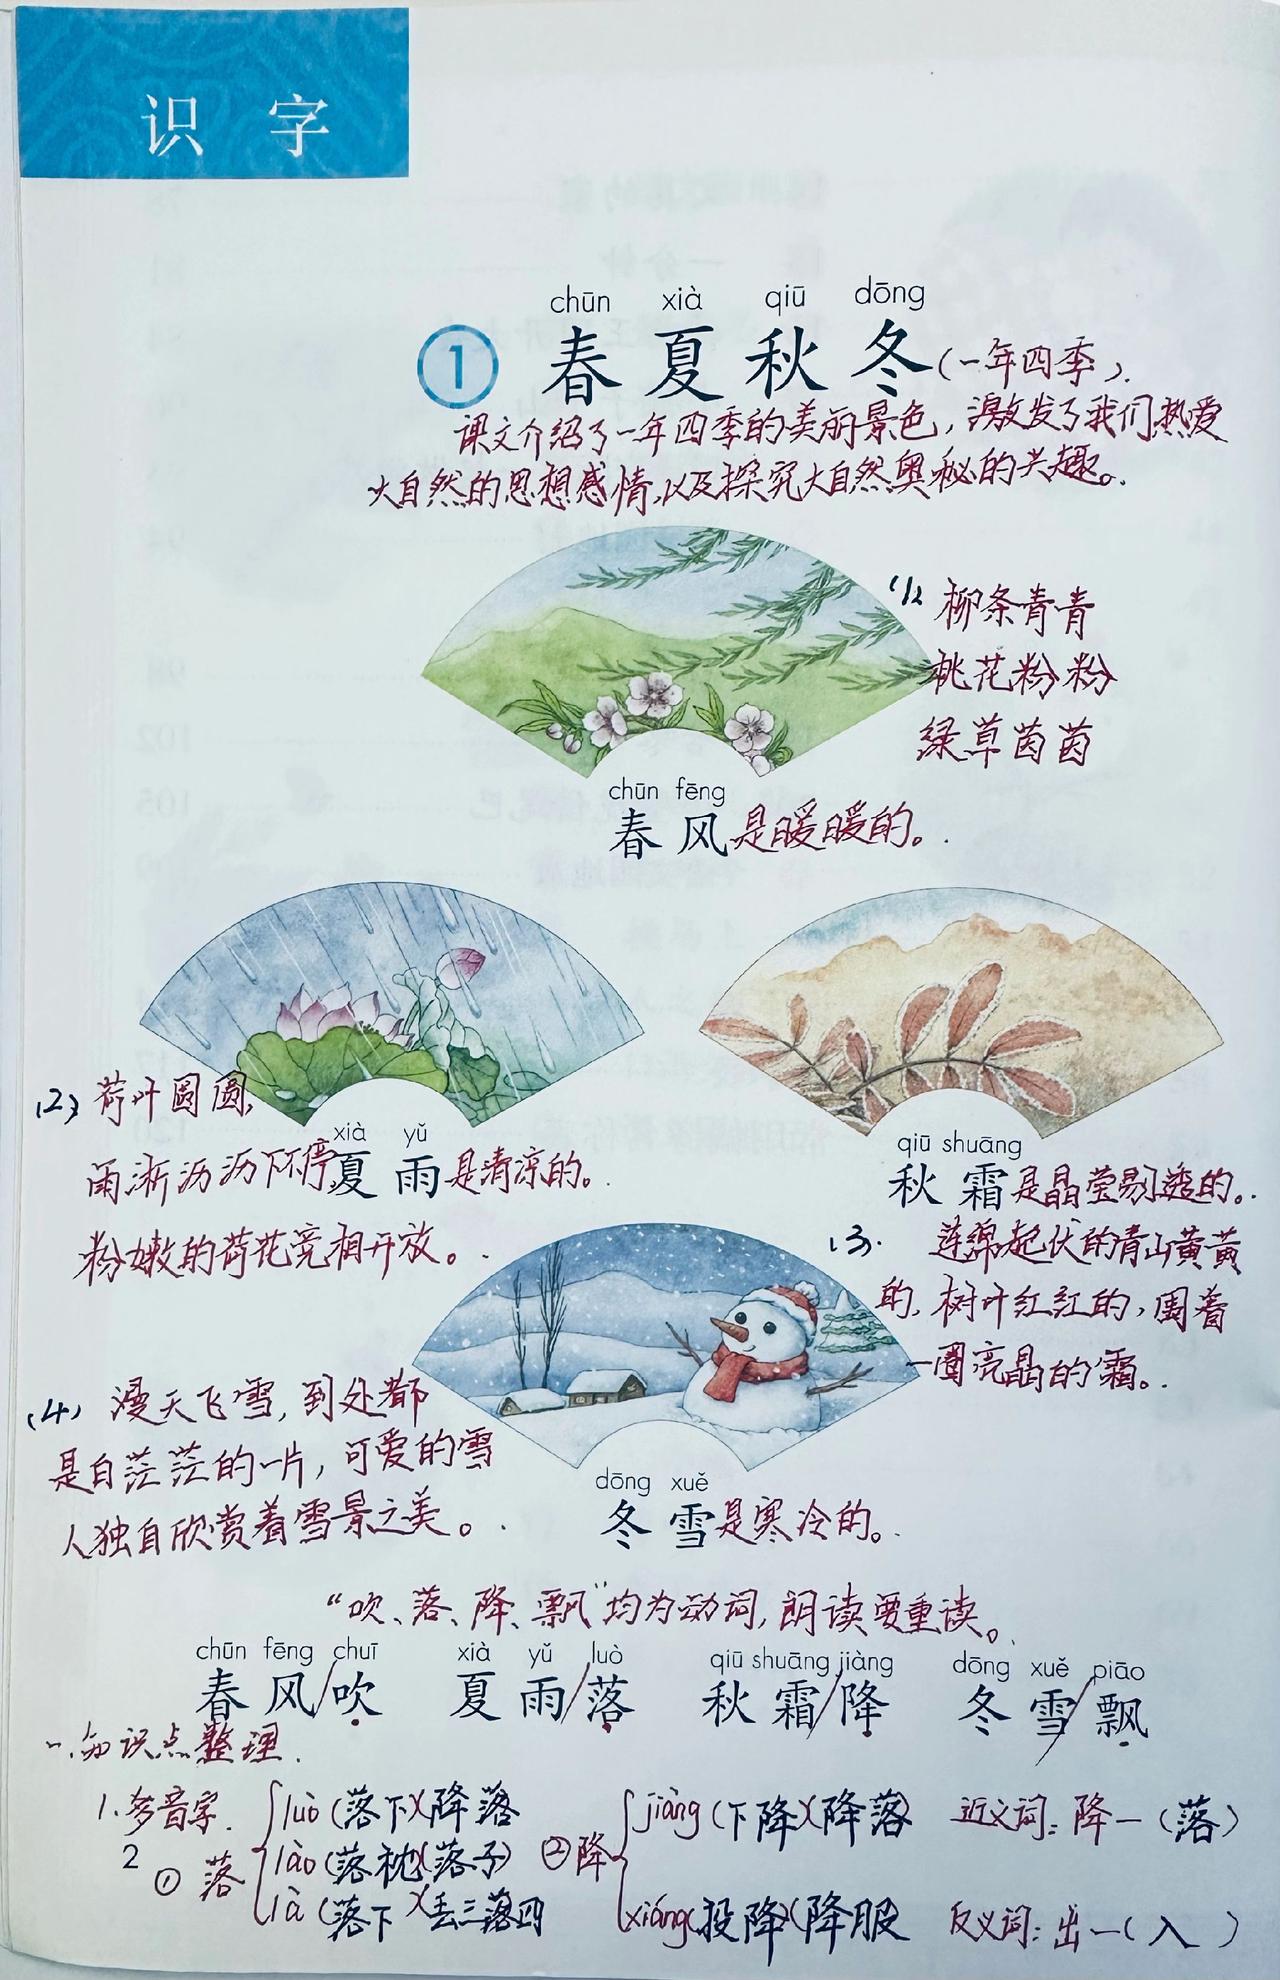 识 字
chūn xià qiū dōng
1 春夏秋冬(一年四季).
课文介绍了一年四季的美丽景色，激发了我们热爱
大自然的思想感情,以及探究大自然奥秘的兴趣。
(1) 柳条青青
桃花粉粉
绿草茵茵
chūn fēng
春风是暖暖的。
(2) 荷叶圆圆,
雨淅沥沥下不停
粉嫩的荷花竞相开放。
xià yǔ
夏雨是清凉的。
qiū shuāng
秋霜是晶莹剔透的。
(3). 连绵起伏的青山黄黄
的，树叶红红的，围着
一圈亮晶的霜。
(4) 漫天飞雪，到处都
是白茫茫的一片，可爱的雪
人独自欣赏着雪景之美。
dōng xuě
冬雪是寒冷的。
“吹、落、降、飘”均为动词，朗读要重读。
chūn fēng chuī xià yǔ luò qiū shuāng jiàng dōng xuě piāo
春风/吹 夏雨/落 秋霜/降 冬雪/飘
一.知识点整理.
1.多音字.
2
① 落
luò (落下)(降落
lào (落枕)(落子)
là (落下)(丢三落四
② 降
jiàng (下降)(降落)
xiáng(投降)(降服
近义词: 降—(落)
反义词: 出—(入)